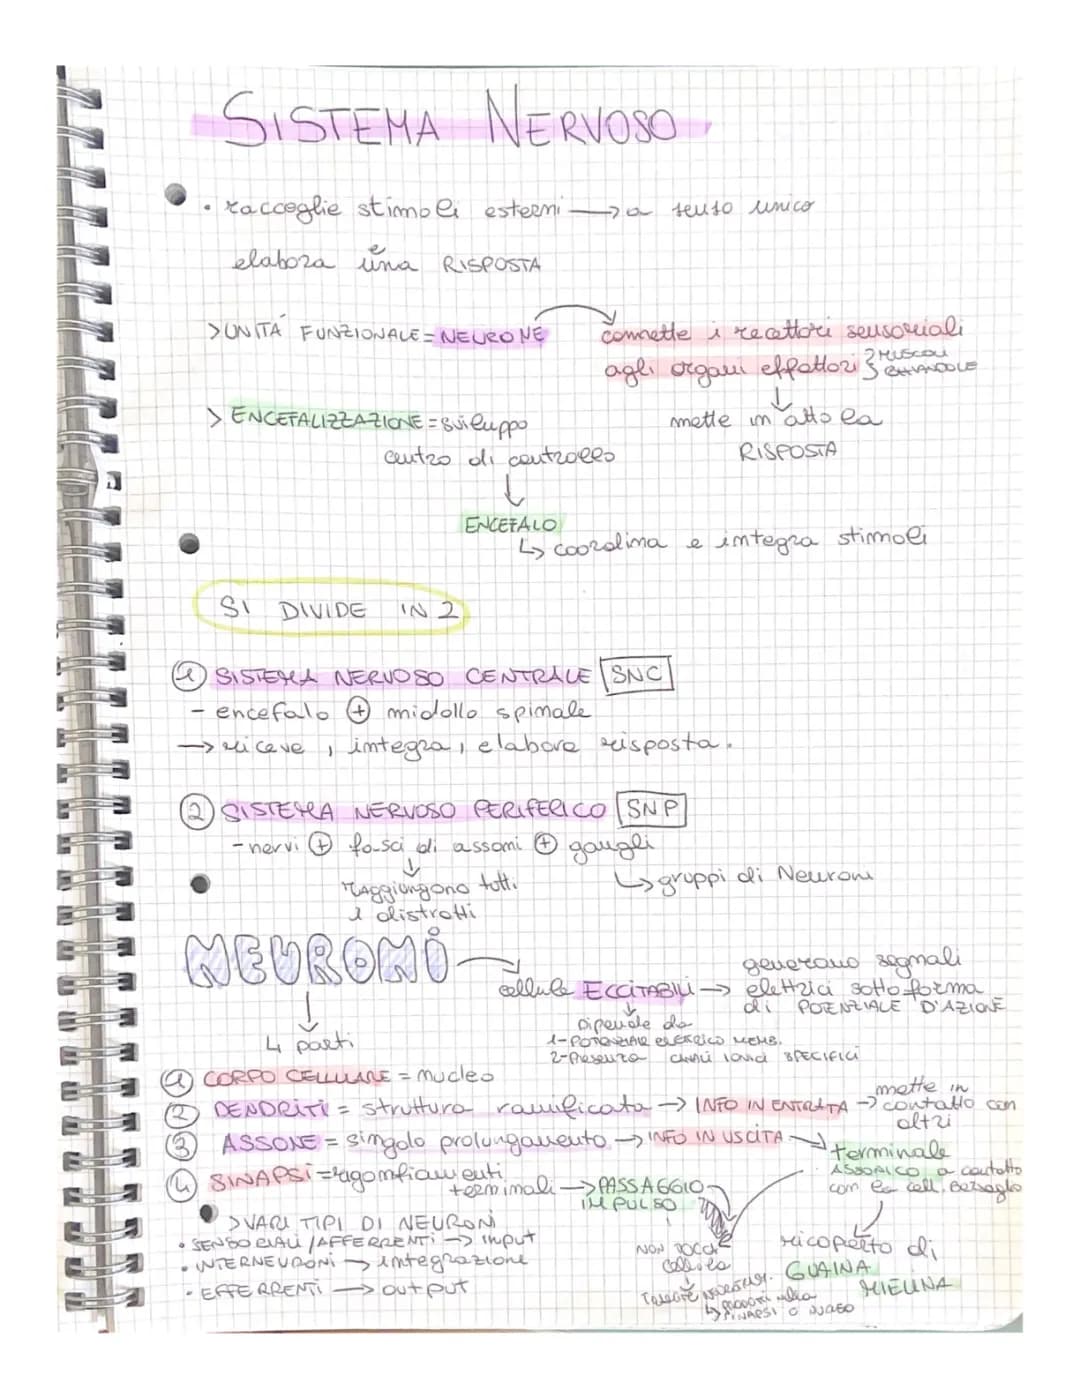 SISTEMA NERVOSO
• raccoglie stimoli esterni → a senso unico
e
elabora una RISPOSTA
> UNITÀ FUNZIONALE = NEURONE
connette i recettori sensoriali
agli organi effettori } MUSCOLI
GHIANDOLE
↓
mette in atto la
RISPOSTA
> ENCEFALIZZAZIONE = sviluppo
centro di controllo
↓
ENCEFALO
↳ coordina e integra stimoli
SI DIVIDE IN 2
① SISTEMA NERVOSO CENTRALE SNC
- encefalo ⊕ midollo spinale
→ riceve, integra, elabora risposta.
② SISTEMA NERVOSO PERIFERICO SNP
- nervi ⊕ fasci di assoni ⊕ gangli
↓
raggiungono tutti
i distretti
↳ gruppi di Neuroni
NEURONI
→ cellule ECCITABILI → generano segnali
elettrici sotto forma
di POTENZIALE D'AZIONE
↓
Dipende da
1-POTENZIALE ELETTRICO MEMB.
2-Presenza canali ionici SPECIFICI
↓
4 parti
① CORPO CELLULARE = nucleo
② DENDRITI = struttura ramificata → INFO IN ENTRATA → mette in
contatto con
altri
③ ASSONE = singolo prolungamento → INFO IN USCITA
terminale
ASSONICO a contatto
con la cell. Bersaglio
④ SINAPSI = rigonfiamenti
terminali → PASSAGGIO
IMPULSO
> VARI TIPI DI NEURONI
• SENSORIALI / AFFERRENTI → input
• INTERNEURONI → integrazione
• EFFERRENTI → output
ricoperto di
GUAINA
MIELINA
NON TOCCA
cellula
↓
SINAPSI o